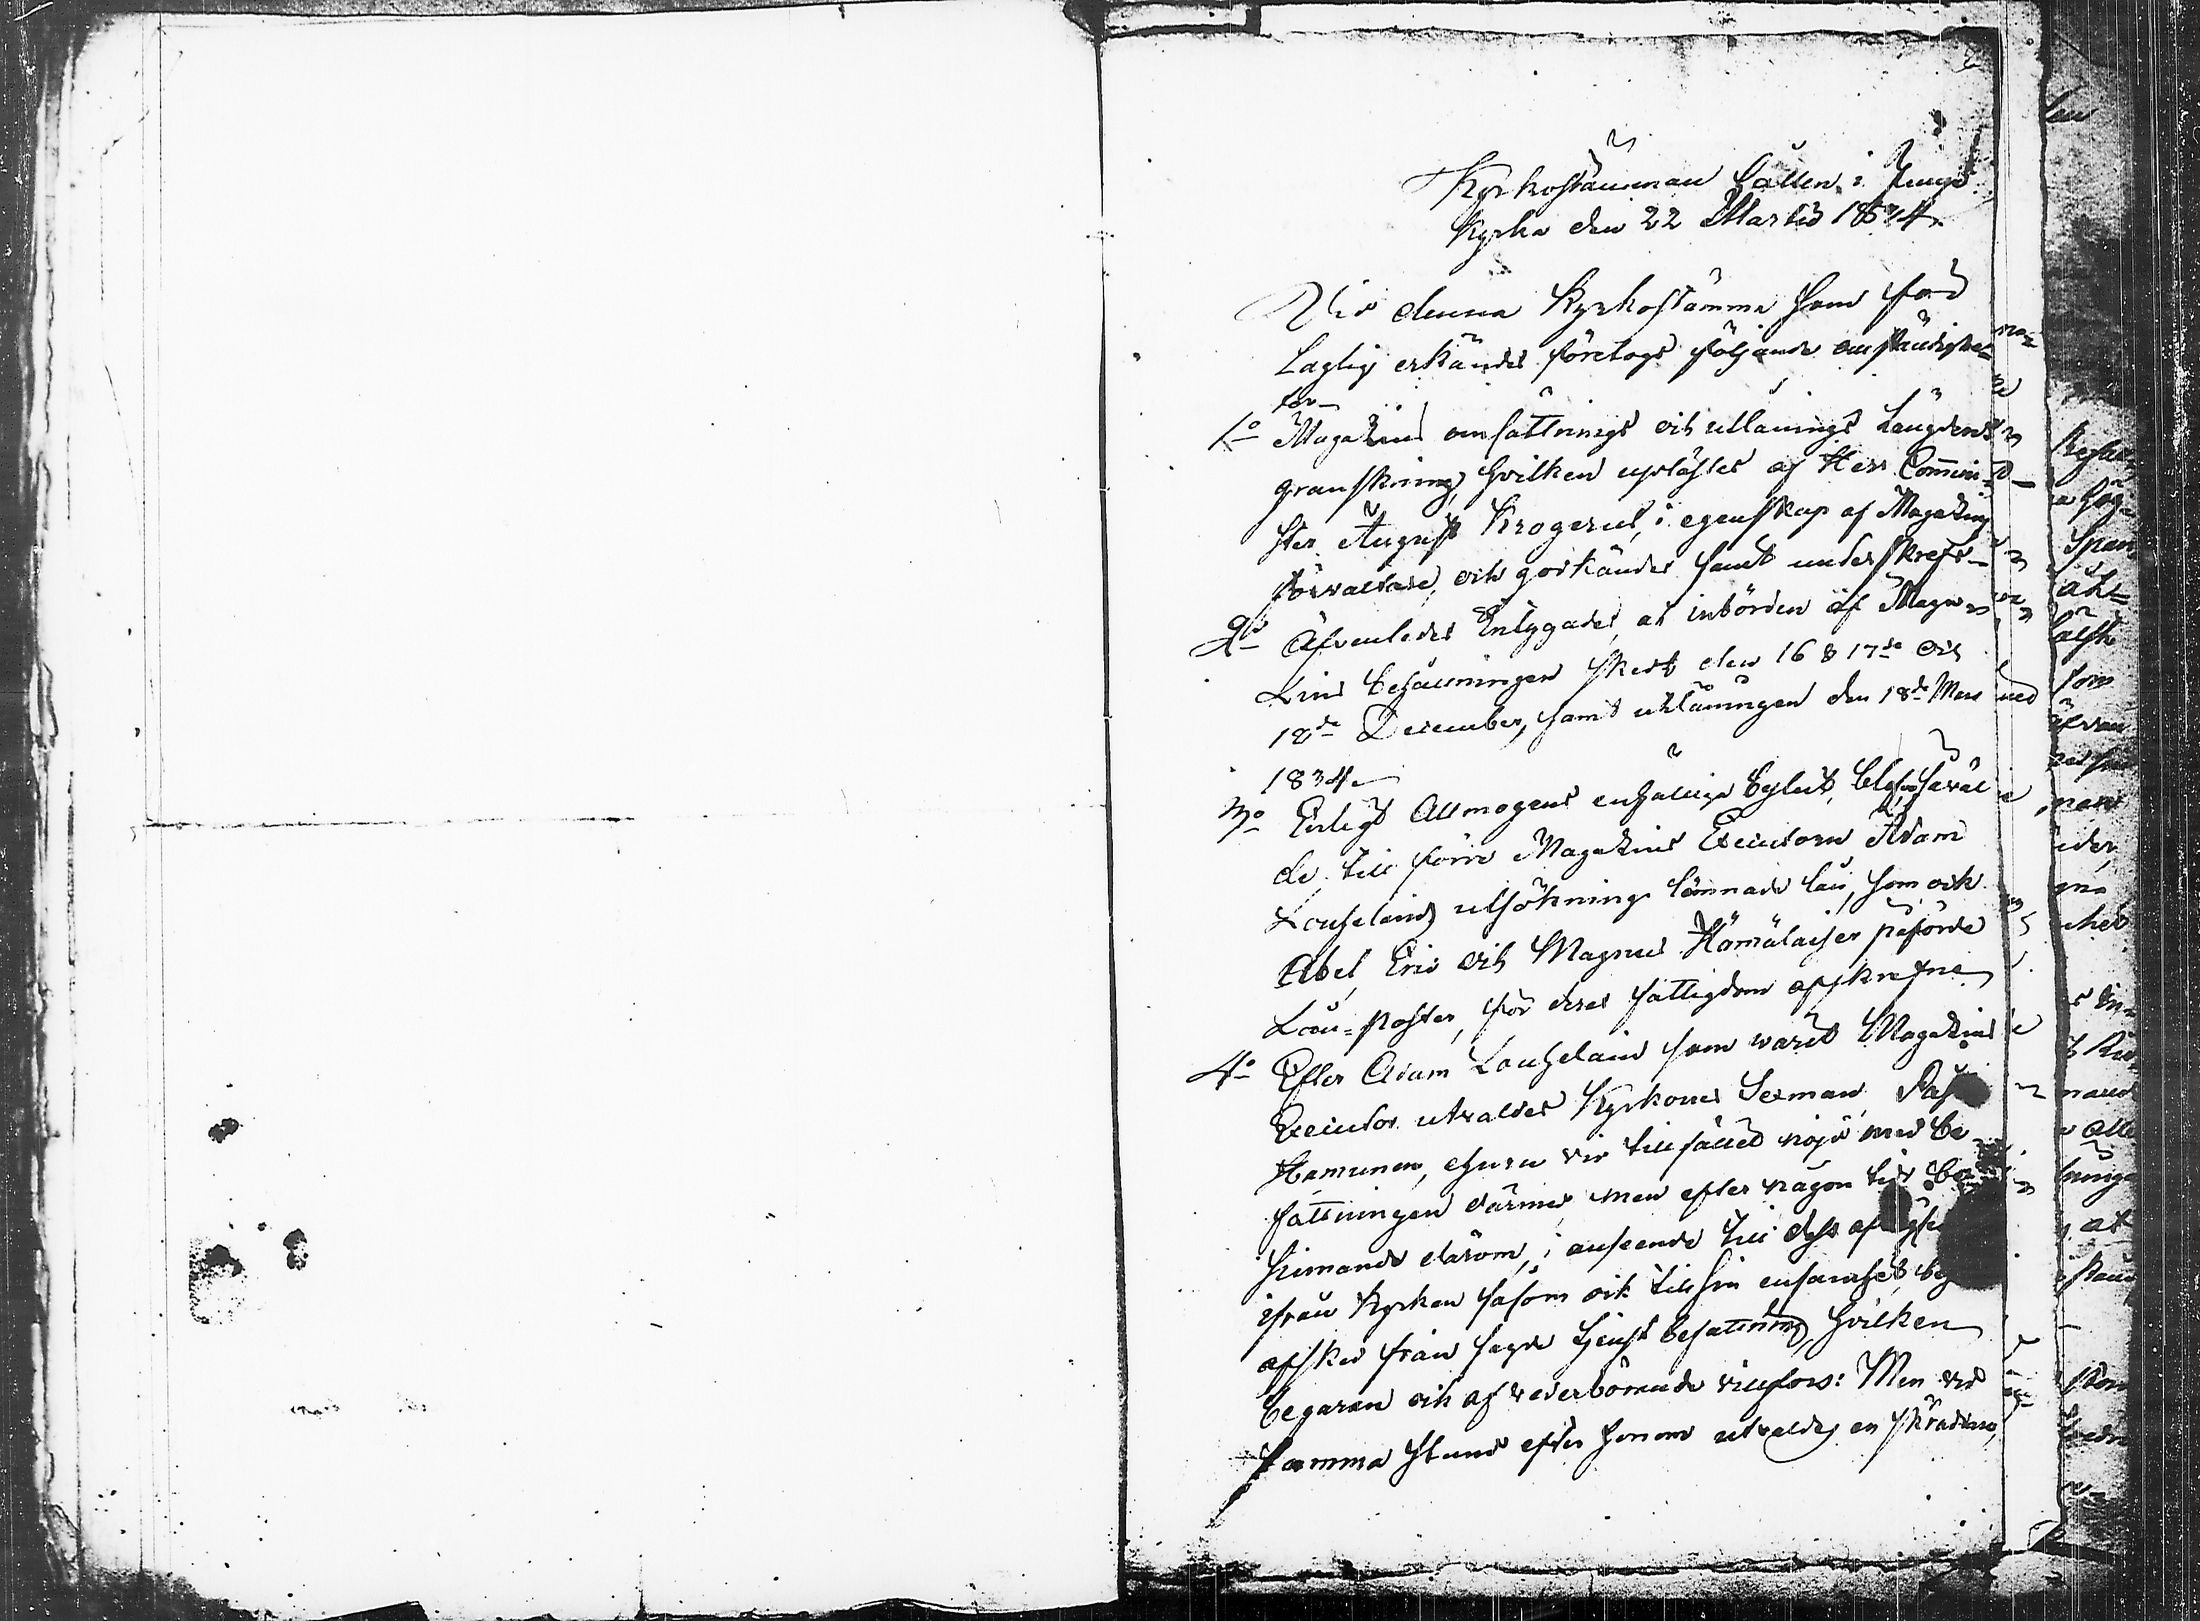 Kyrkostämman hållen i Jungs
Kyrka den 22 Martii 1834
Vid denna Kyrkostämma som för
Laglig erkändes företogs följande omständighe=
ter
1o Magazins omsättnings och utlånings Längdens
granskning, hvilken uplästes af Herr Commini=
ster August Krogerus, i egenskap af Magazins
förvaltare, och godkändes samt underskrefs
2o Äfvenledes Intygades, at inbörden af Maga=
zins behållningen skedt den 16 & 17de och
18de December, samt utlåningen den 18de Mars
1834
3o Enligt Allmogens enhälliga beslut, blefvo såväl
de till förre Magazins Executorn Adam
Louhelains utsökning lämnade lån, som ock
Abel, Eric och Magnus Hämäläises påförde
Lån=poster, för deras fattigdom afskrefne
4o Efter Adam Louhelain som warit Magazins
Executor utvaldes Kyrkones Sexman
Hamunen, ehuru vid tillfället nöjd med be
fattningen därmed men efter någon tid be
sinnande därom, i anseende till dess
ifrån Kyrkan såsom ock till sin ensamhet,
afsked från sagde tjenst befattning, hvilken
begäran ock af vederbörande villfors: Men vid
samma stund efter honom utvaldes en skräddare,